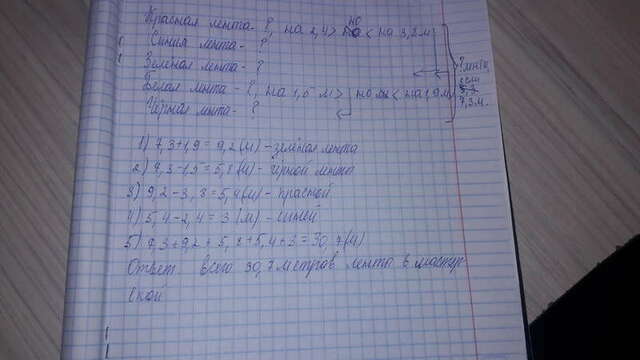 Красная лента - ?, на 2,4 > но < на 3,2 м
Синия лента - ?
Зелёная лента - ?
Белая лента - ?, на 1,5 м > но < на 1,9 м
Чёрная лента - ?
если
7,3 м.
1) 7,3+1,9=9,2(м) - зелёная лента
2) 7,3-1,5=5,8(м) - чёрной ленты
3) 9,2-3,8=5,4(м) - красной
4) 5,4-2,4=3(м) - синей
5) 7,3+9,2+5,8+5,4+3=30,7(м)
Ответ: всего 30,7 метров ленты в мастер
ской